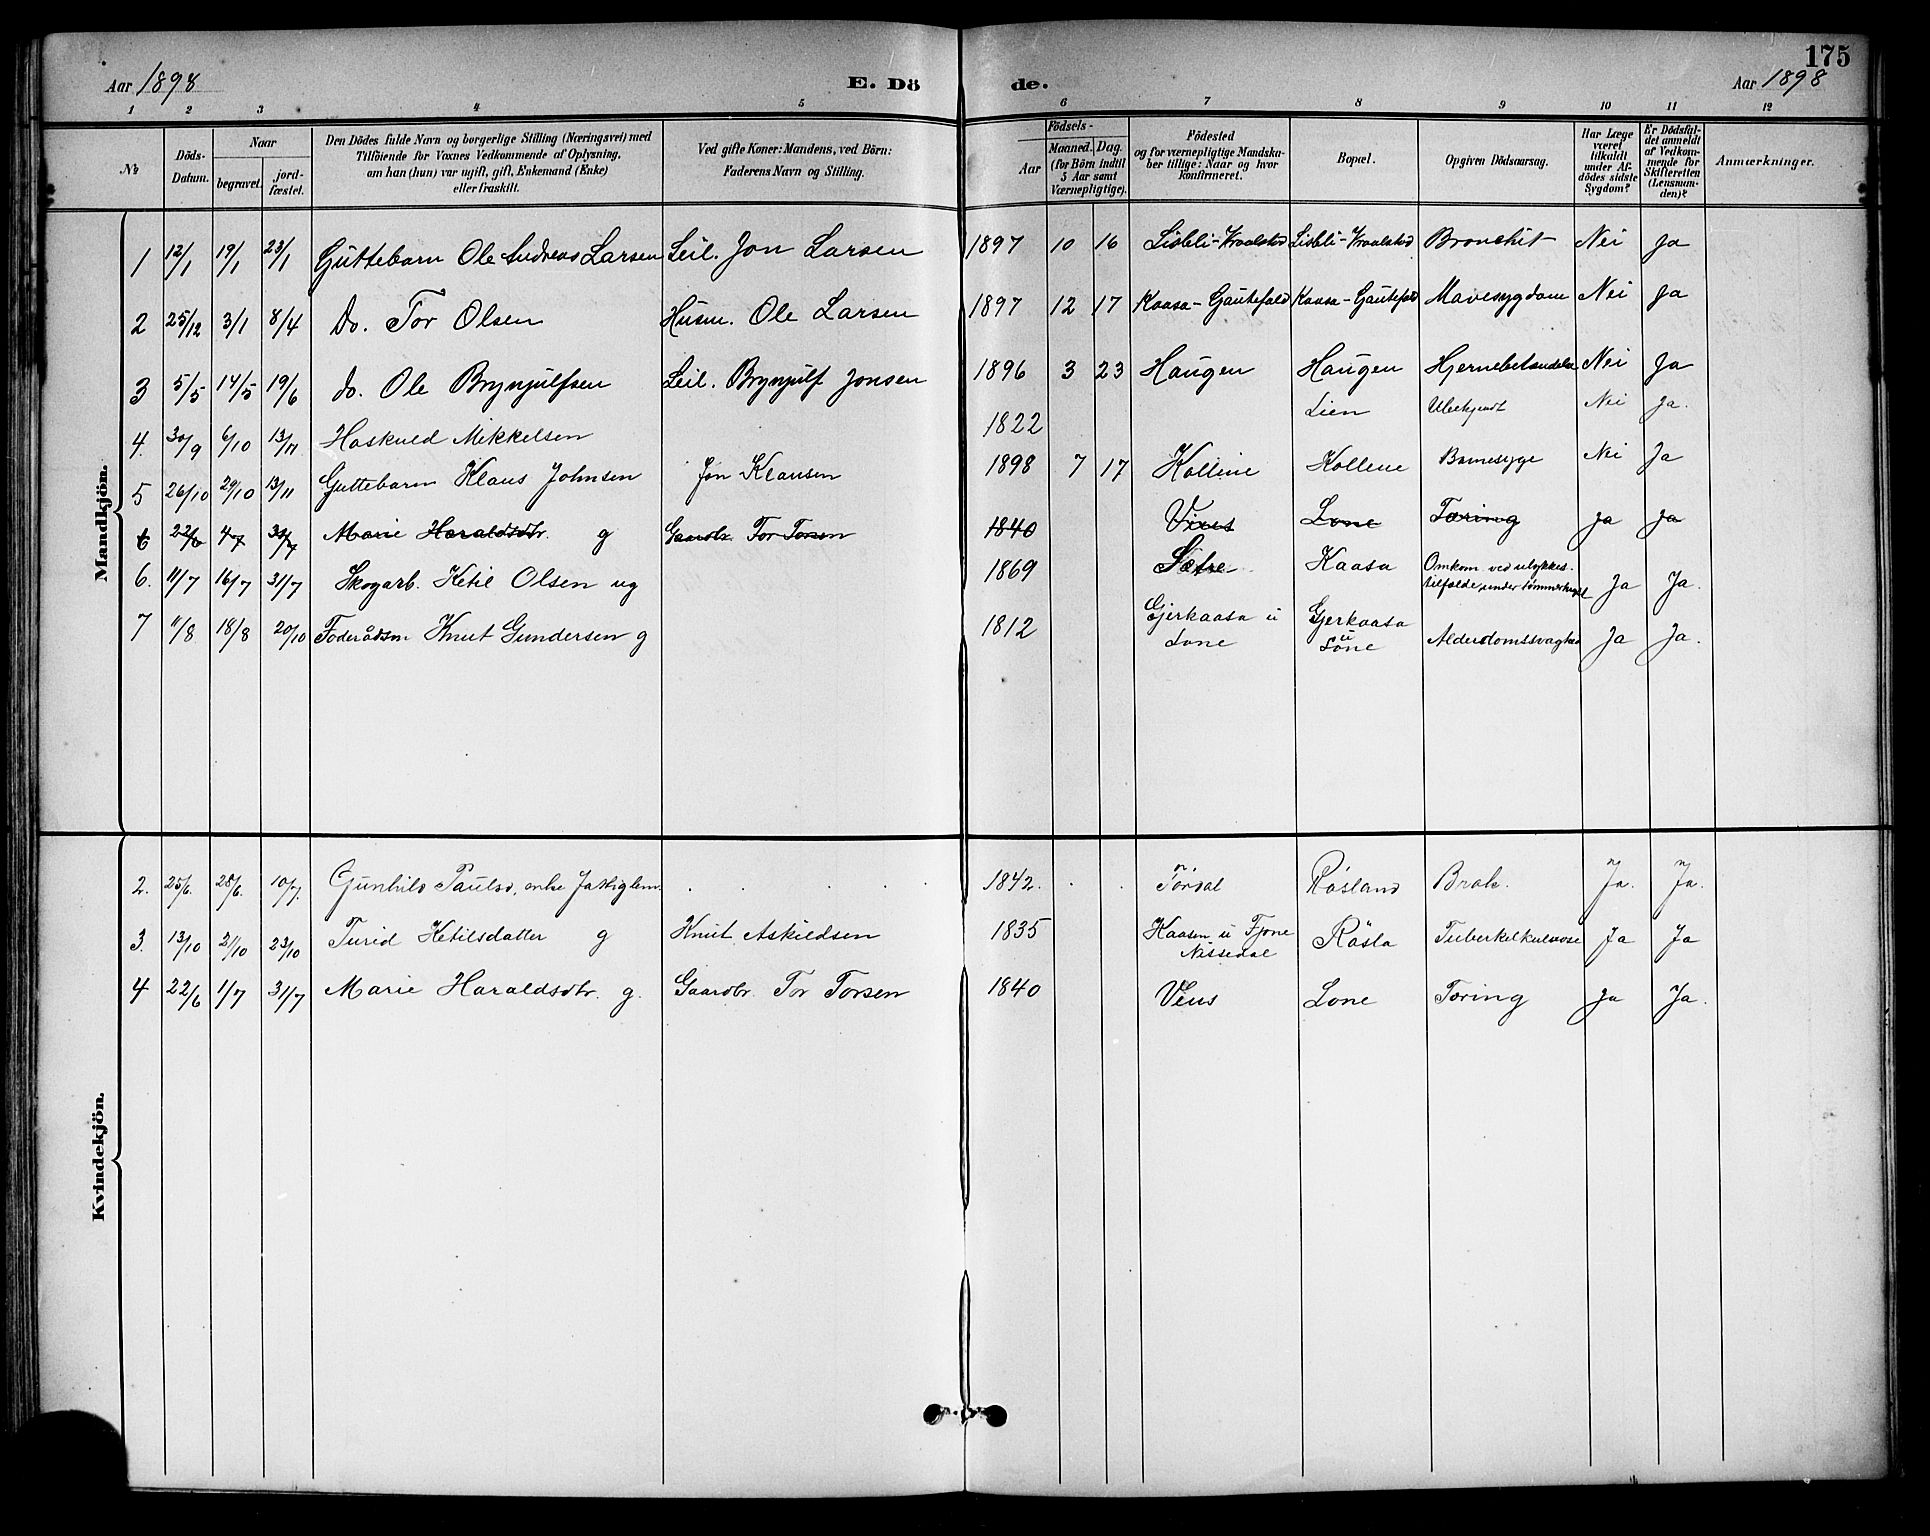 175
Aar 1898 E. Dö de. Aar 1898
1 2 3 4 5 6 7 8 9 10 11 12
№
Döds-Datum.
Naar
begravet.
jord-fæstet.
Den Dödes fulde Navn og borgerlige Stilling (Næringsvei) med
Tilföiende for Voxnes Vedkommende af Oplysning,
om han (hun) var ugift, gift, Enkemand (Enke)
eller fraskilt.
Ved gifte Koner: Mandens, ved Börn:
Faderens Navn og Stilling.
Födsels-
Aar
Maaned. Dag.
(for Börn indtil
5 Aar samt
Værnepligtige).
Födested
og for værnepligtige Mandska-
ber tillige: Naar og hvor
konfirmeret.
Bopæl.
Opgiven Dödsaarsag.
Har Læge
været
tilkaldt
under Af-
dödes sidste
Sygdom?
Er Dödsfal-
det anmeldt
af Vedkom-
mende for
Skifteretten
(Lensman-
den)?
Anmærkninger.
Mandkjön.
1 12/1 19/1 23/1 Guttebarn Ole Andreas Larsen Leil. Jon Larsen 1897 10 16 Lisleli-Kraalstød Lisleli-Kraalstød Bronchit Nei Ja
2 25/12 3/1 8/4 Do. Tor Olsen Husm. Ole Larsen 1897 12 17 Kaasa-Gautefald Kaasa-Gautefald Mavesygdom Nei Ja
3 5/5 14/5 19/6 do. Ole Brynjulfsen Leil. Brynjulf Jonsen 1896 3 23 Haugen Haugen Hjernebetændelse Nei Ja
4. 30/9 6/10 13/11 Haskuld Mikkelsen 1822 Lien Ubekjendt Nei Ja.
5 26/10 29/10 13/11 Guttebarn Klaus Johnsen Jon Klausen 1898 7 17 Kollene Kollene Barnesyge Nei Ja
6 22/6 4/7 31/7 Marie Haraldsdtr. g Gaardbr. Tor Torsen 1840 Lone Tæring Ja Ja
6. 11/7 16/7 31/7 Skogarb. Ketil Olsen ug 1869 Sætre Kaasa Omkom ved ulykkes-
tilfælde under tømmerhugst Ja Ja.
7 11/8 18/8 20/10 Føderådsm Knut Gundersen g 1812 Gjerkaasa u
Lone Gjerkaasa
u
Lone Alderdomssvaghed Ja Ja.
Kvindekjön.
2. 25/6. 28/6. 10/7. Gunhild Paulsd, enke . . . . 1842. . . Tørdal Røsland Brok. Ja. Ja.
3. 13/10 21/10 23/10 Turid Ketilsdatter g Knut Askildsen 1835 Kaasen u Fjone
Nissedal Røsla Tuberkelkulose Ja Ja
4 22/6 1/7 31/7 Marie Haraldsdtr. g. Gaardbr. Tor Torsen 1840 Veus Lone Tæring Ja Ja.